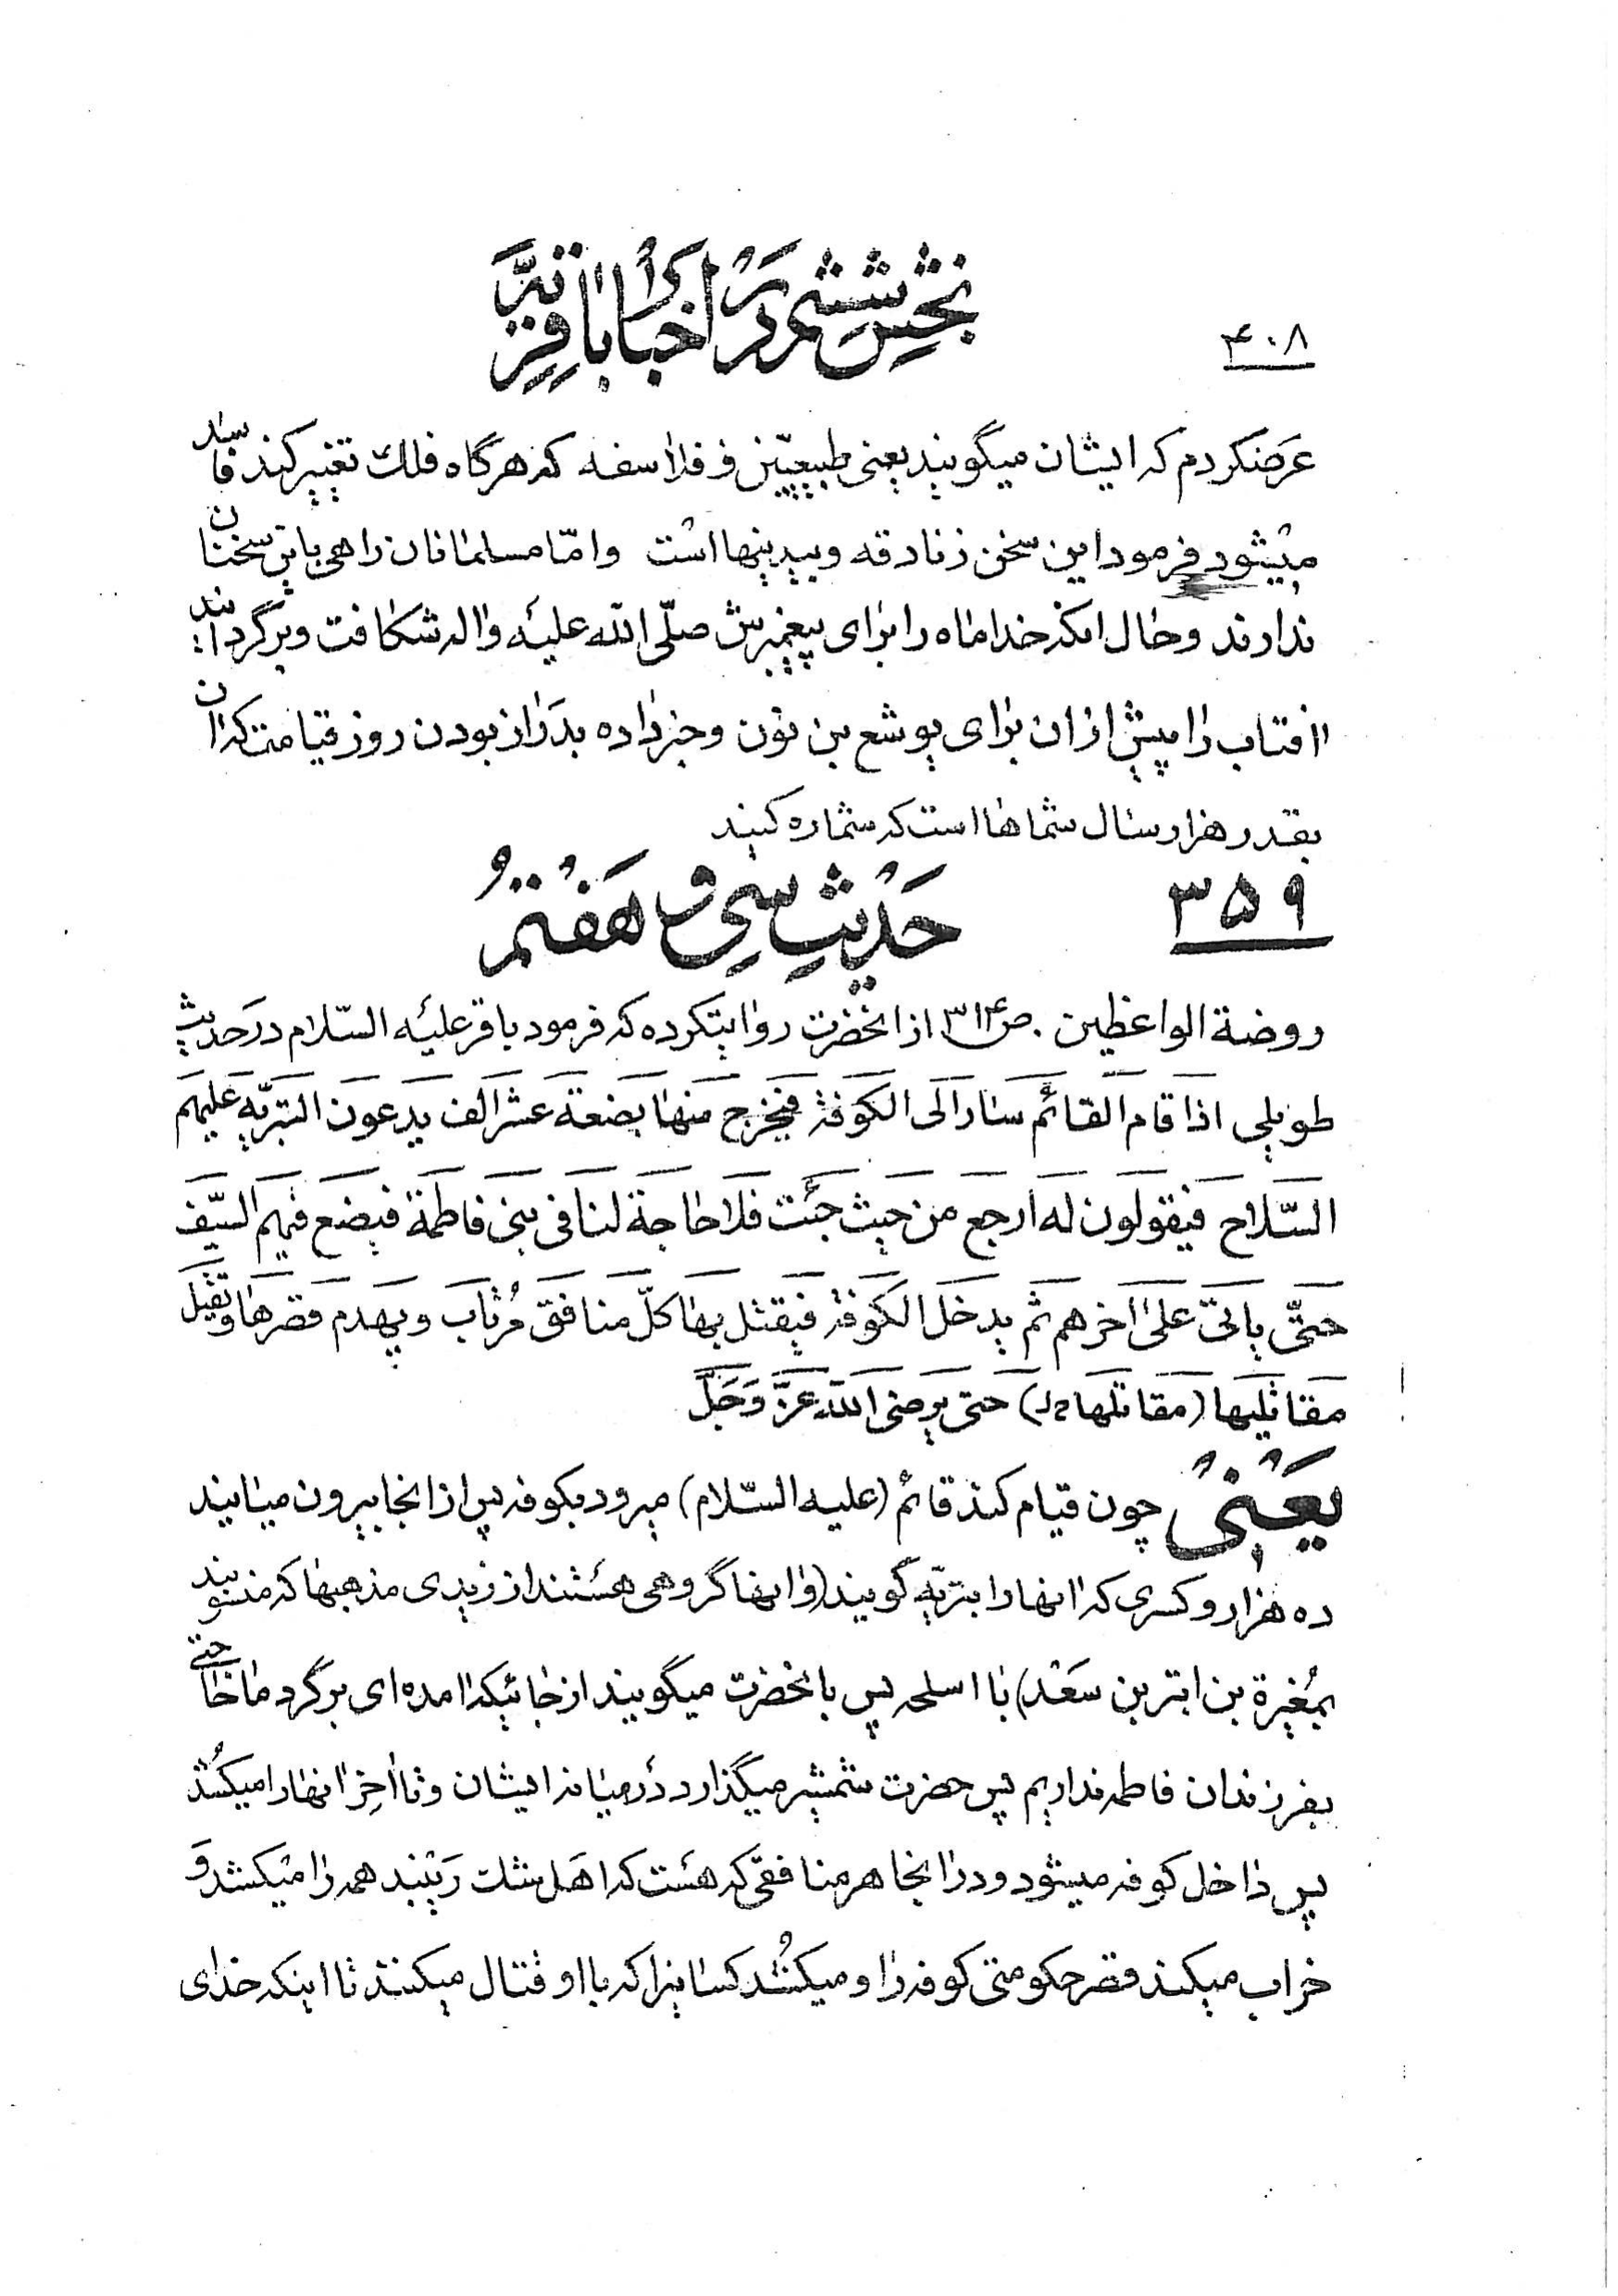 بخش ششم در اخبار باقریّه
۴۰۸
عرضکردم که ایشان میگویند یعنی طبیعیّین و فلاسفه که هرگاه فلك تغییر کند فاسد
میشود فرمود این سخن زنادقه و بیدینها است و امّا مسلمانان راهی باین سخنان
ندارند و حال انکه خدا ماه را برای پیغمبرش صلّی الله علیه و اله شکافت و برگردانید
افتاب را پیش از ان برای یوشع بن نون و خبر داده بدراز بودن روز قیامت که ان
بقدر هزار سال شماها است که شماره کنید
۳۵۹
حدیث سی و هفتم
روضة الواعظین . ص۳۱۴ از انحضرت روایتکرده که فرمود باقر علیه السّلام در حدیث
طویلی اذا قام القائم سار الی الکوفة فیخرج منها بضعة عشر الف یدعون البتریّه علیهم
السّلاح فیقولون له ارجع من حیث جئت فلا حاجة لنا فی بنی فاطمة فیضع فیهم السّیف
حتّی یاتی علی اخرهم ثم یدخل الکوفة فیقتل بها کلّ منافق مُرتاب و یهدم قصرها و تقتل
مقاتلیها (مقاتلها خ ل) حتی یرضی الله عزّ و جلّ
یعنی چون قیام کند قائم (علیه السّلام) میرود بکوفه پس از انجا بیرون میایند
ده هزار و کسری که انها را بتریّه گویند (و انها گروهی هستند از زیدی مذهبها که منسوبند
بمُغیرة بن ابتر بن سَعْد) با اسلحه پس بانحضرت میگویند از جائیکه امده‌ای برگرد ما حاجتی
بفرزندان فاطمه نداریم پس حضرت شمشیر میگذارد در میانه ایشان و تا اخِر انها را میکُشد
پس داخل کوفه میشود و در انجا هر منافقی که هست که اهل شك و ریبند همه را میکشد و
خراب میکند قصر حکومتی کوفه را و میکُشد کسانیرا که با او قتال میکنند تا اینکه خدای